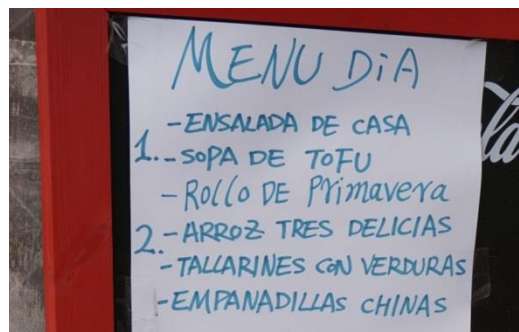 MENU DiA
-ENSALADA DE CASA
1.-SOPA DE TOFU
-ROLLO DE PRiMAVERA
2.-ARROZ TRES DELICIAS
-TALLARINES CON VERDURAS
-EMPANADILLAS CHINAS